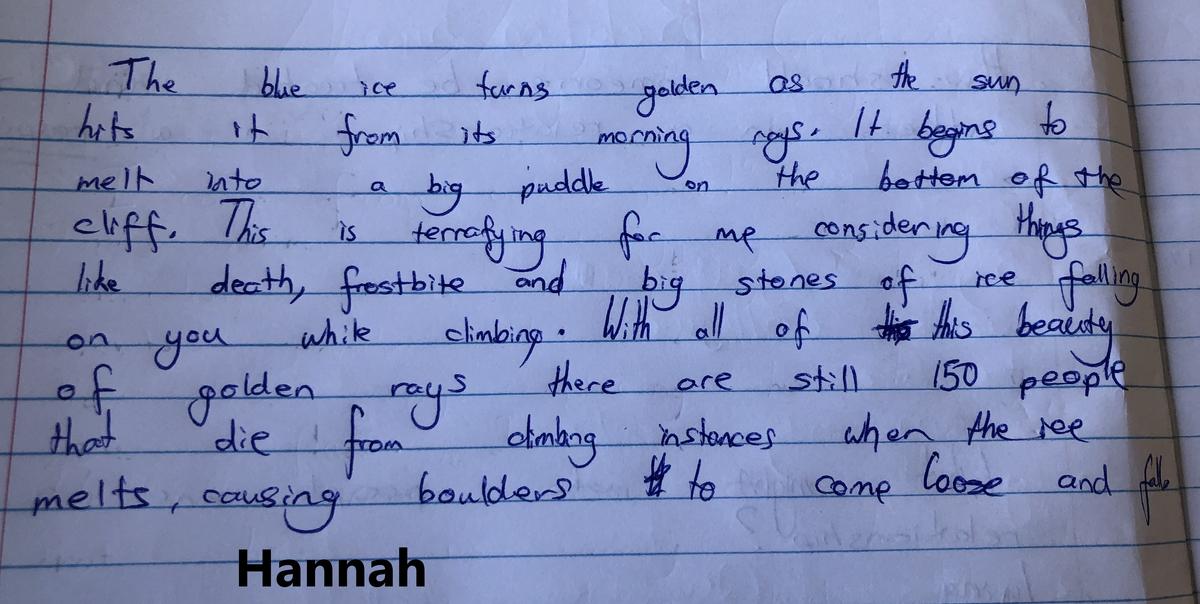 The blue ice turns golden as the sun
hits it from its morning rays. It begins to
melt into a big puddle on the bottom of the
cliff. This is terrafying for me considering things
like death, frostbite and big stones of ice falling
on you while climbing. With all of this beauty
of golden rays there are still 150 people
that die from climbing instances when the ice
melts, causing boulders to come loose and fall
Hannah